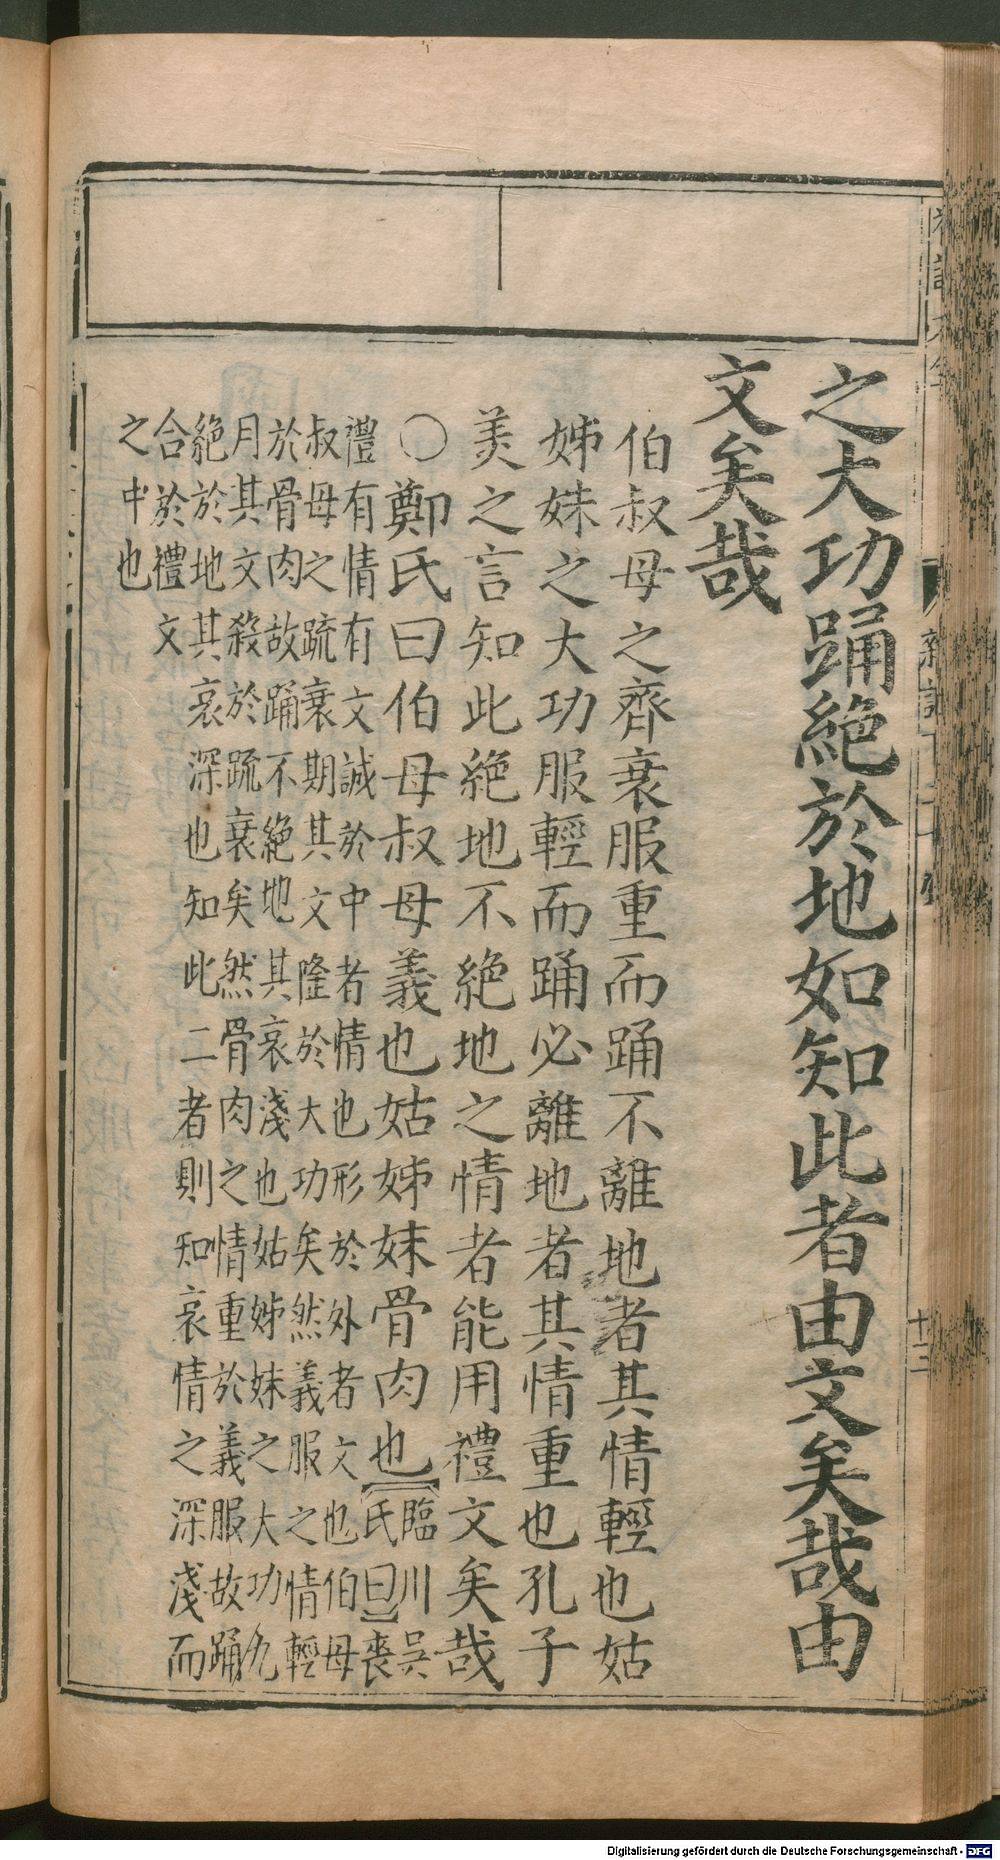 之大功踊絕於地如知此者由文矣哉由
文矣哉
伯叔母之齊衰服重而踊不離地者其情輕也姑
姊妹之大功服輕而踊必離地者其情重也孔子
美之言知此絕地不絕地之情者能用禮文矣哉
○鄭氏曰伯母叔母義也姑姊妹骨肉也【臨川吳
氏曰】喪
禮有情有文誠於中者情也形於外者文也伯母
叔母之疏衰期其文隆於大功矣然義服之情輕
於骨肉故踊不絕地其哀淺也姑姊妹之大功九
月其文殺於疏衰矣然骨肉之情重於義服故踊
絕於地其哀深也知此二者則知哀情之深淺而
合於禮文
之中也
十三
Digitalisierung gefördert durch die Deutsche Forschungsgemeinschaft - DFG